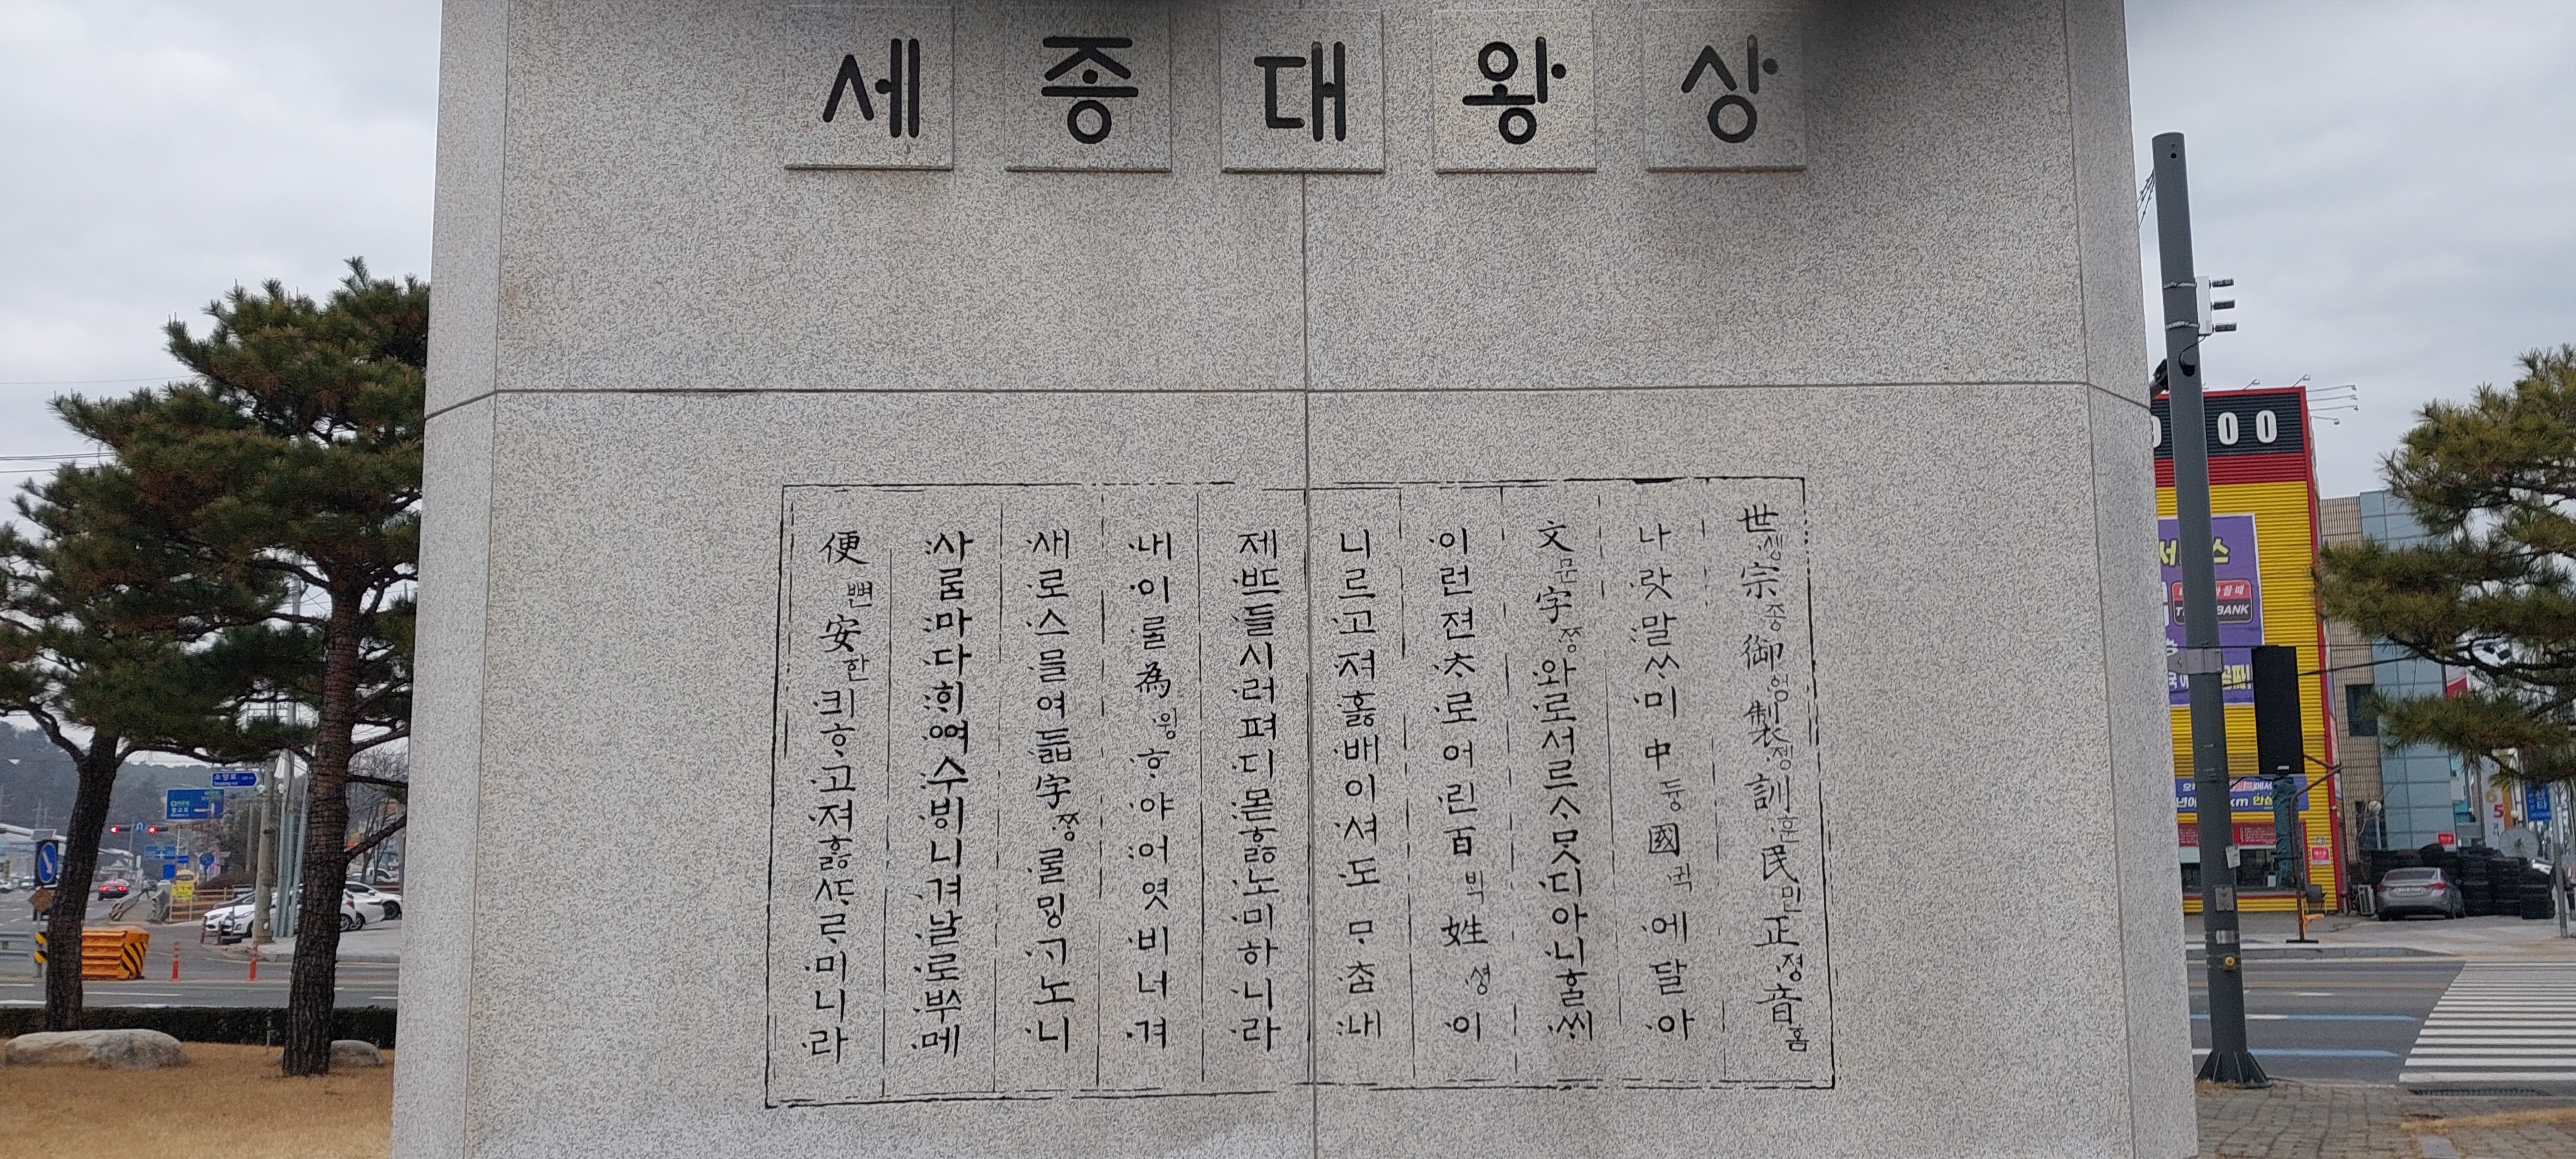 세종대왕상
世솅宗종御엉製졩訓훈民민正졍音흠
나랏말ᄊᆞ미中듕國귁에달아
文문字ᄍᆞᆼ와로서르ᄉᆞᄆᆞᆺ디아니ᄒᆞᆯᄊᆡ
이런젼ᄎᆞ로어린百ᄇᆡᆨ姓셩이
니르고져홇배이셔도ᄆᆞᄎᆞᆷ내
제ᄠᅳ들시러펴디몯ᄒᆞᇙ노미하니라
내이ᄅᆞᆯ為윙ᄒᆞ야어엿비너겨
새로스믈여듧字ᄍᆞᆼᄅᆞᆯᄆᆡᇰᄀᆞ노니
사ᄅᆞᆷ마다ᄒᆡᅇᅧ수ᄫᅵ니겨날로ᄡᅮ메
便뼌安한킈ᄒᆞ고져ᄒᆞᇙᄯᆞᄅᆞ미니라
00
BANK
km